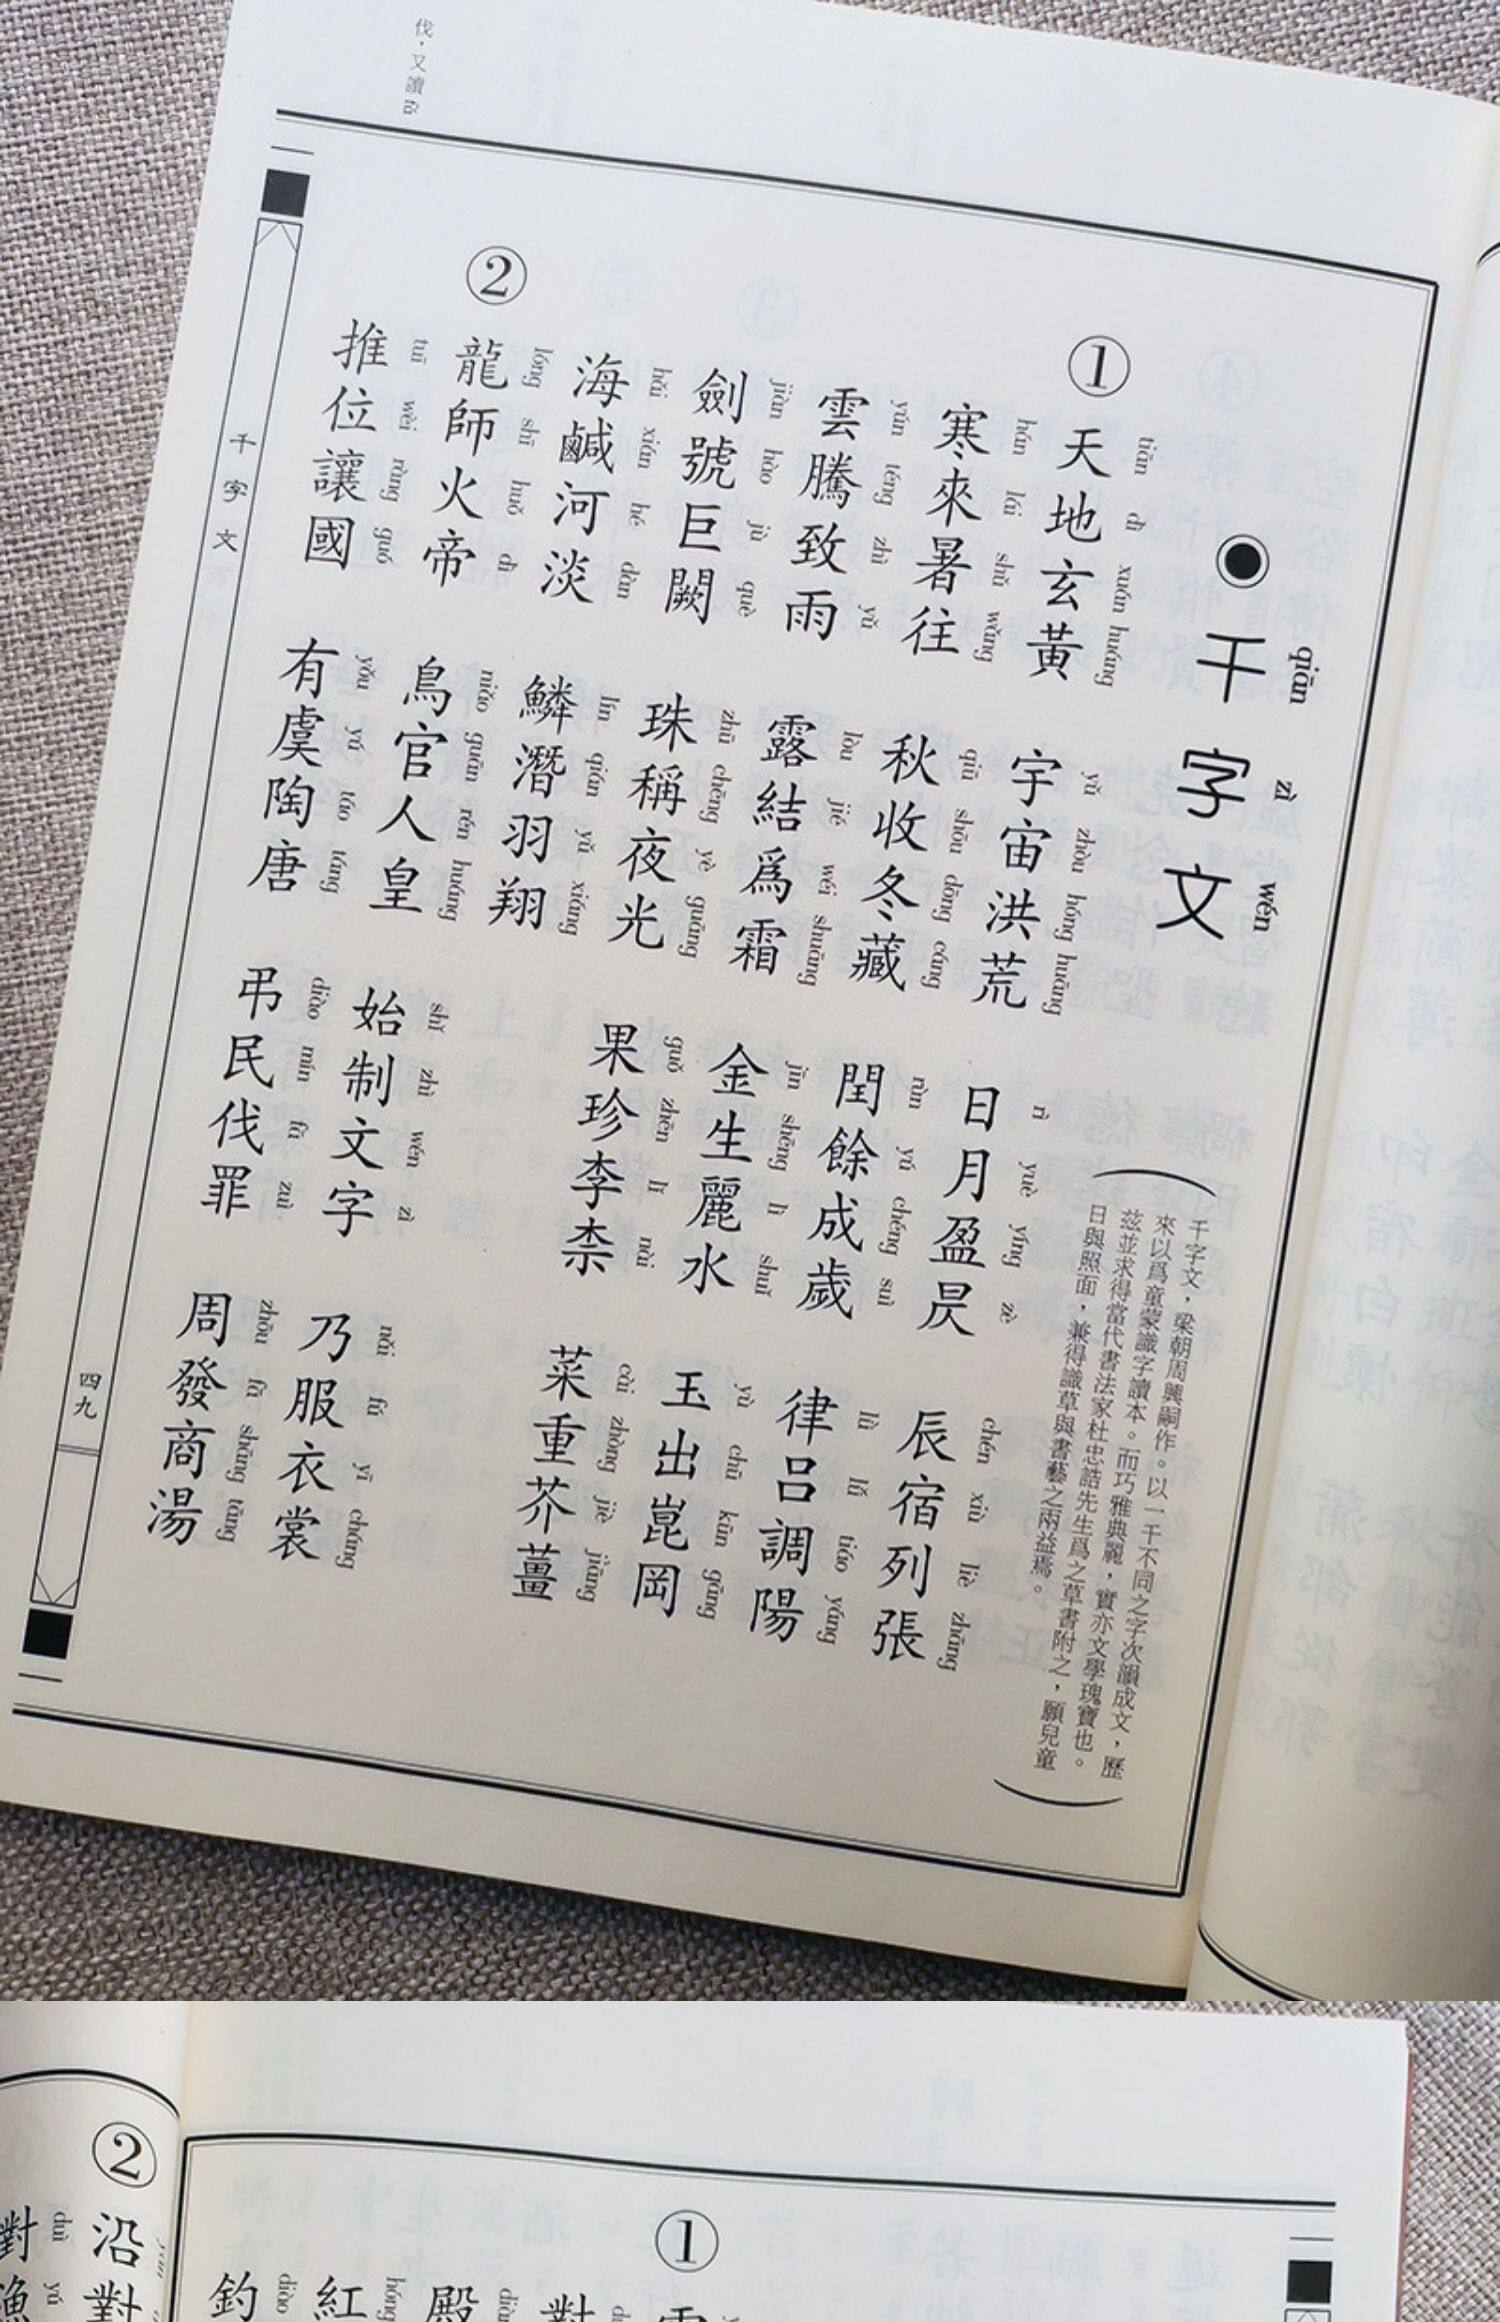 千字文
qiān zì wén
千字文，梁朝周興嗣作。以一千不同之字次韻成文，歷
來以爲童蒙識字讀本。而巧雅典麗，實亦文學瑰寶也。
茲並求得當代書法家杜忠誥先生爲之草書附之，願兒童
日與照面，兼得識草與書藝之兩益焉。
①
天地玄黃 宇宙洪荒 日月盈昃 辰宿列張
tiān dì xuán huáng yǔ zhòu hóng huāng rì yuè yíng zè chén xiù liè zhāng
寒來暑往 秋收冬藏 閏餘成歲 律呂調陽
hán lái shǔ wǎng qiū shōu dōng cáng rùn yú chéng suì lǜ lǚ tiáo yáng
雲騰致雨 露結爲霜 金生麗水 玉出崑岡
yún téng zhì yǔ lù jié wéi shuāng jīn shēng lì shuǐ yù chū kūn gāng
劍號巨闕 珠稱夜光 果珍李柰 菜重芥薑
jiàn hào jù què zhū chēng yè guāng guǒ zhēn lǐ nài cài zhòng jiè jiāng
海鹹河淡 鱗潛羽翔
hǎi xián hé dàn lín qián yǔ xiáng
②
龍師火帝 鳥官人皇 始制文字 乃服衣裳
lóng shī huǒ dì niǎo guān rén huáng shǐ zhì wén zì nǎi fú yī cháng
推位讓國 有虞陶唐 弔民伐罪 周發商湯
tuī wèi ràng guó yǒu yú táo táng diào mín fā zuì zhōu fā shāng tāng
伐，又讀fá
千字文
四九
①
對
殿
diàn
紅
hóng
釣
diào
②
沿對
對漁
duì yú